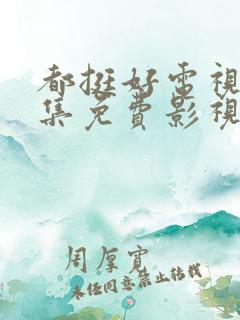 都挺好電視
集免費影視
周厚寬
未经同意禁止转载